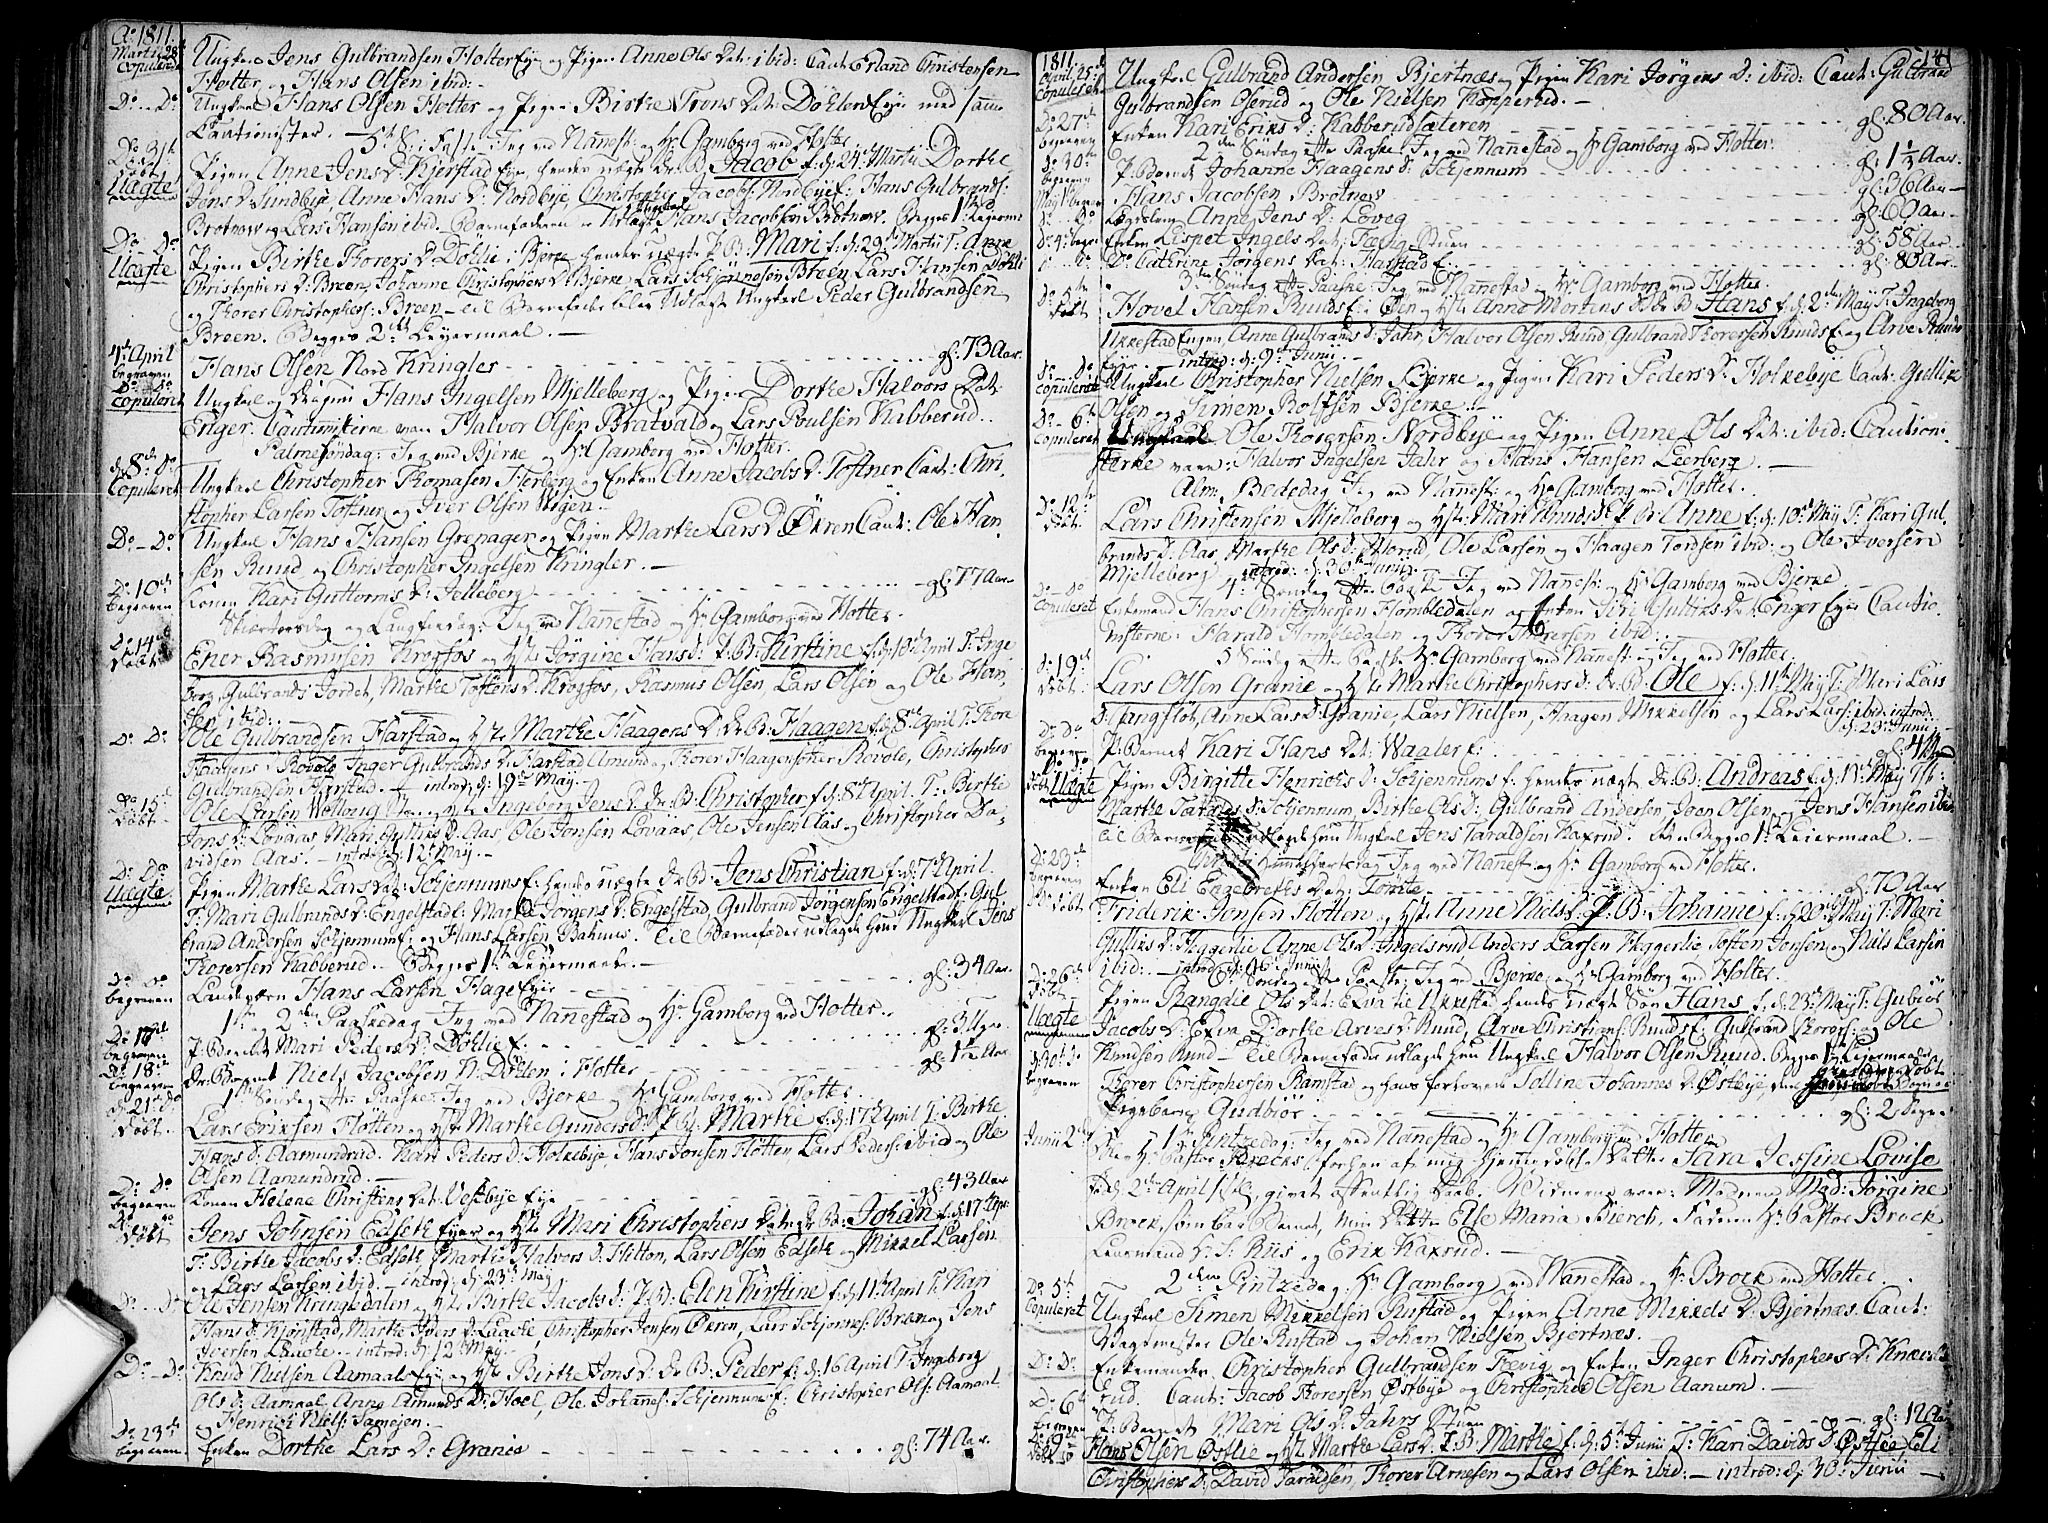 Ao 1811.
Martii 28de Copuleret Ungkarl Jens Gulbrandsen Holter Eye og Pigen Anne Ols Dat: ibid: Caut: Erland Christensen
Holter og Hans Olsen ibid:
Do - Do Ungkarl Hans Olsen Holter og Pigen Birthe Trons Dat: Døhlen Eye med samme
Cautionister. - 5te S: i Faste Jeg ved Nannest: og Hr Gamborg ved Holter
Do 31te Døbt Uægte Pigen Anne Jens D: Kjerstad Eye, hendes uægte Dr: B: Jacob f: d: 24de Martii Dorthe
Jens D: Sundbye, Anne Hans D: Nordbye, Christopher Jacobs: Nordbye f: Hans Gulbrands:
Brotnow og Lars Hansen ibid. Barnefaderen er Ungkarl Hans Jacobsen Brotnow. Begges 1te Leyermaal
Do - Do Uægte Pigen Birthe Thorers D: Døhlie i Bjerke hendes uægte P: B: Mari f: d: 29de Martii T: Anne
Christophers D: Breen, Johanne Christophers D: Bjerke, Lars Schjønnesøn Breen, Lars Hansen Døhli
og Thorer Christophers: Breen - til Barnefader blev udlagt Ungkarl Peder Gulbrandsen
Breen. Begges 2det Leyermaal. -
4de April begraven Hans Olsen Nord Kringler - - - gl: 73 Aar.
Do - Do Copuleret Ungkarl og Dragun Hans Ingelsen Mjelleberg og Pigen Dorthe Halvors Dat:
Enger. Cautionisterne vare Halvor Olsen Bratvald og Lars Poulsen Kabberud.
Palmesøndag: Jeg ved Bjerke og Hr Gamborg ved Holter.
d: 8de Do Copuleret Ungkarl Christopher Thomasen Herberg og Enken Anne Jacobs D: Toftner Caut: Chri
stopher Larsen Toftner og Iver Olsen Wigen.
Do - Do Ungkarl Hans Hansen Grenager og Pigen Marthe Lars D: Økren Caut: Ole Han
sen Ruud og Christopher Ingelsen Kringler. -
Do 10de begraven Konen Kari Guttorms D: Jelleberg - - - gl: 77 Aar.
Skiærtorsdag og Langfredag: Jeg ved Nannestad og Hr Gamborg ved Holter.
Do 14de Døbt Ener Rasmusen Krogfos og Hste Jørgine Hans D: P: B: Kirstine f: d: 10de April T: Inge
borg Gulbrands Jordet, Marthe Toftens D: Krogfos, Rasmus Olsen, Lars Olsen og Ole Han
sen ibid:
Do Do Ole Gulbrandsen Harstad og Hste Marthe Haagens D: Dr: B: Haagen f: d: 8de April T: Thore
Haagens D: Rovole Inger Gulbrands D: Harstad Amund og Thorer Haagensønner Rovole, Christopher
Gulbrandsen Harstad. - introd: d: 19de May. -
Do 15de Døbt Ole Larsen Ingeborg Jens D: Dr: B: Christopher f: d: 8de April. T: Birthe
Jons D: Lovaas, Mari Gulliks D: Aas, Ole Jonsen Lovaas, Ole Jensen Aas og Christopher Da-
vidsen Aas. - introd: d: 12te May. -
Do Do Uægte Pigen Marthe Lars Dat: Schjennums f: hendes uægte Dr: B: Jens Christian f: d: 7de April
T: Mari Gulbrands D: Engelstad f: Marthe Jørgens D: Engelstad, Gulbrand Jørgensen Engelstad f: Gul
brand Andersen Schjennum f: og Hans Larsen Bahuus. Til Barnefader udlagde hun Ungkarl Jens
Thorersen Kabberud. - Begges 1te Leyermaal. -
Do Do begraven Landværn Hans Larsen Hage Eyie - - - gl: 34 Aar.
1te og 2den Paaskedag Jeg ved Nannestad og Hr Gamborg ved Holter.
Do 17de begraven P: Barnet Mari Peders D: Døhlie f: - - - gl: 3 Uger.
Do 18de begraven Dr: Barnet Niels Jacobsen N: Døhlen i Holter - - - gl: 1½ Aar
1te Søndag efter Paaske: Jeg ved Bjerke og Hr Gamborg ved Holter.
d: 21de Do Døbt Lars Eriksen Fløtten og Hste Marthe Gunders D: P: B: Marthe f: d: 17de April T: Birthe
Hans D: Aamundrud. Kari Peders D: Holkebye, Hans Jonsen Fløtten Lars Peders: ibid og Ole
Olsen Aamundrud.
Do Do begraven Konen Helene Christens Dat: Vestbye Eye - - - gl: 43 Aar
Do Do Døbt Jens Johnsen Edseth Eyer og Hste Mari Christophers Dat: Dr: B: Johan f: d: 17de Apr:
T: Birthe Jacobs D: Edseth, Marthe Halvors D: Hitton, Lars Olsen Edseth og Mikkel Larsen
og Lars Larsen ibid - introd: d: 23de May.
Do - Do Ole Jensen Kringledalen og Hste Birthe Jacobs D: P: B: Elen Kirstine f: d: 11te April T: Kari
Hans D: Kjønstad, Marthe Ivers D: Laache, Christopher Jensen Økren, Lars Schjønnes: Bræn og Jens
Iversen Laache. - introd: d: 12te May. -
Do - Do Knud Nielsen Aamaals Eye og Hste Birthe Jons D: Dr: B: Peder f: d: 16 April T: Ingeborg
Ols D: Aamaal, Anne Amunds D: Hoel, Ole Johannes: Schjennum f: Christopher Ols: Aamaal
og Henrich Niels: Samojen. -
Do 23de begraven. Enken Dorthe Lars D: Granie - - - gl: 74 Aar.
1811. 141
April 25de Copuleret Ungkarl Gulbrand Andersen Bjertnæs og Pigen Kari Jørgens D: ibid: Caut: Gulbrand
Gulbrandsen Oserud og Ole Nielsen Kopperhid. -
Do 27de begraven Enken Kari Eriks D: Kabberudsæteren - - - gl: 80 Aar.
2den Søndag efter Paaske Jeg ved Nannestad og Hr Gamborg ved Holter.
do 30te begraven P: Barnet Johanne Haagens D: Schjennum - - - gl: 1½ Aar.
May 1te begraven Hans Jacobsen Brotnow - - - gl: 36 Aar -
Do - Do Lægdslem Anne Jens D: Loveg - - - gl: 60 Aar.
Do 4de begr: Enken Lispet Ingels Dat: Hævig Stuen - - - gl: 58 Aar.
Do Do Do Cathrine Jørgens Dat: Harstad E: - - - gl: 80 Aar.
3de Søndag efter Paaske Jeg ved Nannestad og Hr Gamborg ved Holter.
Do 5te Døbt Hovel Hansen Ruuds E: i Øen og Hste Anne Mortens D: Dr: B: Hans f: d: 2den May T: Ingeborg
Ukkestad Engen, Anne Gulbrands D: Jahr, Halvor Olsen Ruud, Gulbrand Thorersen Ruuds E: og Arve Ruuds
Eye. - introd: d: 9de Junii. -
Do - Do Copuleret Ungkarl Christopher Nielsen Bjerke og Pigen Kari Peders D: Holkebye Caut: Gullik
Olsen og Simen Rolfsen Bjerke. -
Do - 6te Copuleret Ungkarl Ole Thorersen Nordbye og Pigen Anne Ols Dat: ibid: Caution
sterne vare: Halvor Ingelsen Jahr og Hans Hansen Leerberg. -
Alm: Bededag Jeg ved Nannest: og Hr Gamborg ved Holter.
Do 12te Døbt. Lars Christensen Mjelleberg og Hste Mari Knuds D: P: B: Anne f: d: 10de May T: Kari Gul
brands D: Aas, Marthe Ols D: Morud, Ole Larsen og Haagen Tordsen ibid: og Ole Iversen
Mjelleberg introd: d: 30te Junii.
4de Søndag efter Paaske - Jeg ved Nannest: og Hr Gamborg ved Bjerke
Do - Do Copuleret Enkemand Hans Christophersen Hombledalen og Enken Siri Gulliks Dat: Enger Eyer Cautio
nisterne: Harald Hombledalen og Thorer Thorersen ibid:
5 Søndag efter Paaske Hr Gamborg ved Nannest: og Jeg ved Holter.
Do 19de Døbt Lars Olsen Granie og Hste Marthe Christophers D: Dr: B: Ole f: d: 11te May T: Mari Lars
D: Langsløt, Anne Lars D: Granie, Lars Nielsen, Haagen Mikkelsen og Lars Lars: ibid. introd. d: 23de Junii -
Do - Do begraven P: Barnet Kari Hans Dat: Waaler f: - - - gl: 4 Uger
Do Do Døbt Uægte Pigen Birgitte Henrichs D: Schjennums f: hendes uægte Dr: B: Andreas f: d: 11te May T:
Marthe Taralds D: Schjennum, Birthe Ols D: Gulbrand Andersen, Joen Olsen, og Jens Hansen ibid
til Barnefader udlagde hun Ungkarl Jens Taraldsen Kaxrud. - Begges 1te Leiermaal -
Christi Himmelfartsdag Jeg ved Nannest: og Hr Gamborg ved Holter.
Do 23de begraven Enken Eli Engebreths Dat: Tomte - - - gl: 70 Aar
Do Døbt Friderik Jonsen Fløtten og Hste Anne Niels D: P: B: Johanne f: d: 20de May T: Mari
Gulliks D: Heggerlie, Anne Ols D: Ingelsrud, Anders Larsen Heggerlie, Toften Jonsen, og Niels Larsen
ibid: - introd: d: 16de Junii
6te Søndag efter Paaske: Jeg ved Bjerke og Hr Gamborg ved Holter.
Do 26de Døbt Uægte Pigen Rangdie Ols Dat: Exva til Ukkestad hendes uægte Søn Hans f: d: 23de May T: Gubiør
Jacobs D: Exva, Dorthe Arves D: Ruud, Arve Christians: Ruuds f: Gulbrand Thorers: og Ole
Knudsen Ruud - Til Barnefader udlagde hun Ungkarl Halvor Olsen Ruud. Begges 1te Leyermaal
d: 30te Do begraven Thorer Christophersen Ramstad og hans forlovede Solline Johannes D: Østbye, den
Pigebarn Gudbiør - - - gl: 2 Dage
Junii 2den 1te Pintzedag: Jeg ved Nannestad og Hr Gamborg ved Holter
Ble Hr Pastor Brocks forhen af mig hjemmedøbte Datter Sara Jessine Lovise
f: d: 2den April givet offentlig Daab. Vidnerne vare: Mad: Jørgine
Brock, som bar Barnet, min Datter Else Maria Bierch, Faderen Hr Pastor Brock
Lieutnand H: S: Riis og Erik Kaxrud. -
2den Pintzedag, Hr Gamborg ved Nannestad og Hr Brock ved Holter.
Do 5te Copuleret Ungkarl Simen Mikkelsen Rustad og Pigen Anne Mikkels D: Bjertnæs. Caut:
Vagtmester Ole Rustad og Johan Nielsen Bjertnæs.
Do - Do Enkemanden Christopher Gulbrandsen Hævig og Enken Inger Christophers D: Knæ
rud. Caut: Jacob Thorersen Østbye og Christopher Olsen Aanum. -
Do 6te begraven P: Barnet Mari Ols D: Jahrs Stuen - - - gl: 12 Aar
Do 9de Døbt Hans Olsen Østlie og Hste Marthe Lars D: P: B: Marthe f: d: 5te Junii T: Kari Davids D: Østlie, Eli
Christophers D: David Taraldsen, Thorer Arnesen og Lars Olsen ibid: - introd: d: 30te Junii -